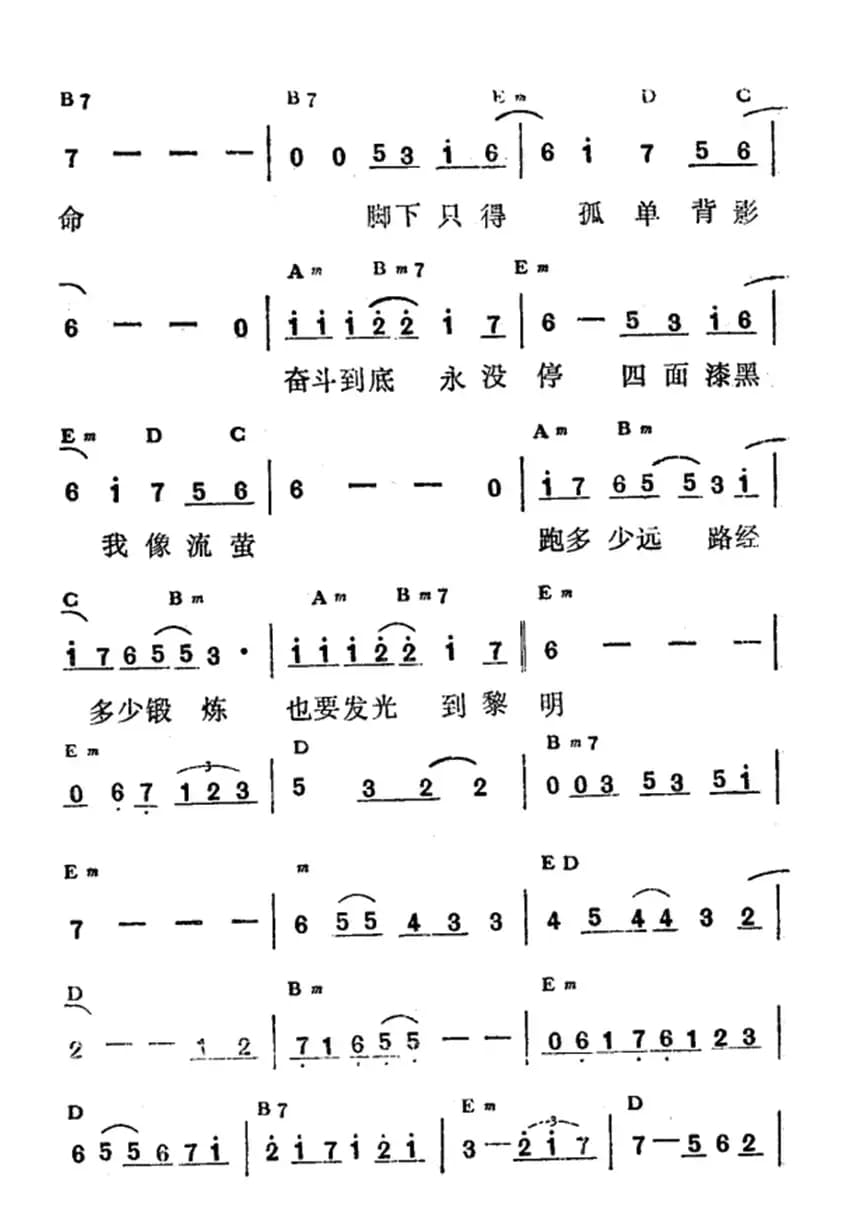 B7 B7 Em D C
7 — — — | 0 0 5 3 i 6 | 6 i 7 5 6 |
命 脚下只得 孤单背影
Am Bm7 Em
6 — — 0 | i i i 2̇ 2̇ i 7 | 6 — 5 3 i 6 |
奋斗到底 永没停 四面漆黑
Em D C Am Bm
6 i 7 5 6 | 6 — — 0 | i 7 6 5 5 3 i |
我像流萤 跑多少远 路经
C Bm Am Bm7 Em
i 7 6 5 5 3 · | i i i 2̇ 2̇ i 7 ‖ 6 — — — |
多少锻炼 也要发光 到黎明
Em D Bm7
3
0 6̣ 7̣ 1 2 3 | 5 3 2 2 | 0 0 3 5 3 5 i |
Em m ED
7 — — — | 6 5 5 4 3 3 | 4 5 4 4 3 2 |
D Bm Em
2 — — 1 2 | 7̣ 1 6̣ 5̣ 5̣ — — | 0 6̣ 1 7̣ 6̣ 1 2 3 |
D B7 Em D
3
6 5 5 6 7 i | 2̇ i 7 i 2̇ i | 3 — 2̇ i 7 | 7 — 5 6 2 |